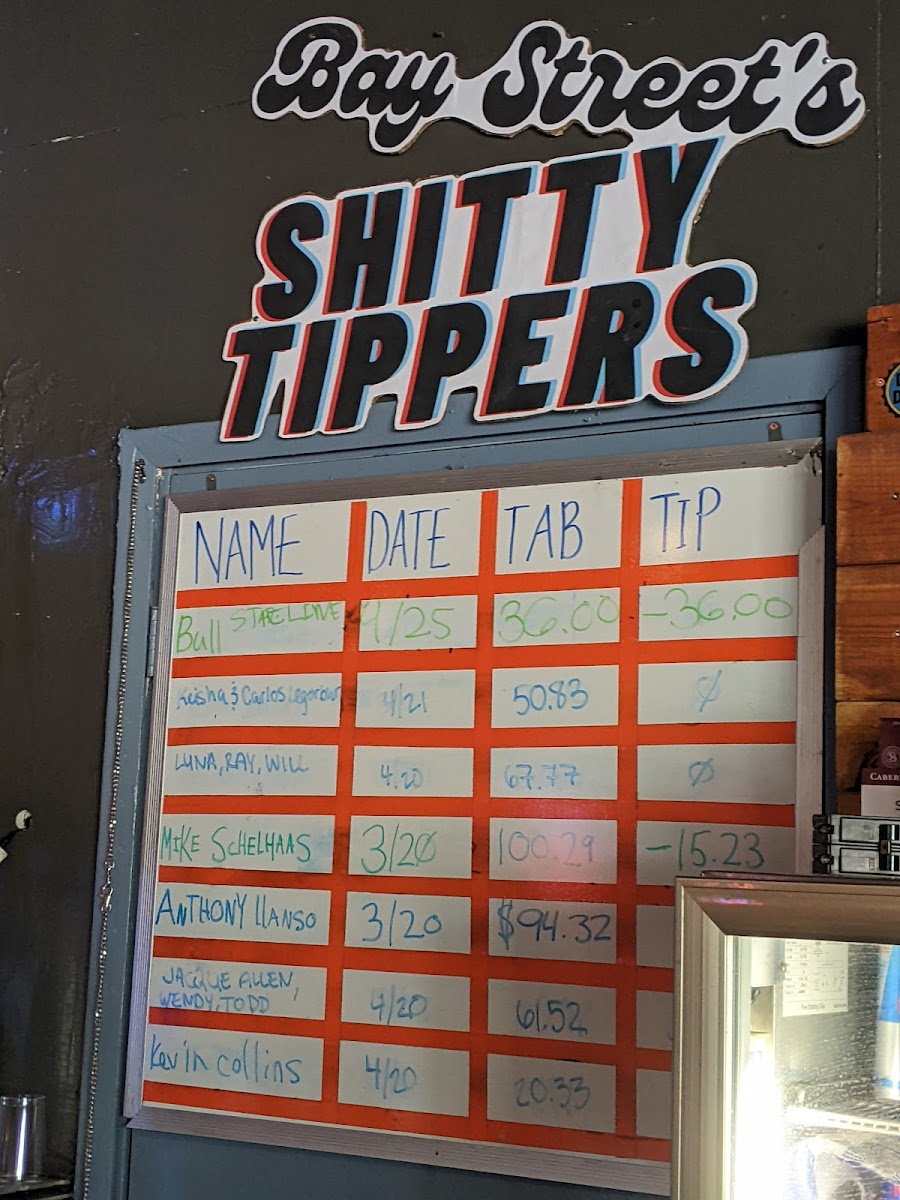 Bay Street's
SHITTY
TIPPERS
NAME DATE TAB TIP
Bull STATELINE 4/25 36.00 -36.00
Keisha & Carlos 4/21 50.83 Ø
LUNA, RAY, WILL 4.20 67.77 Ø
MIKE SCHELHAAS 3/20 100.29 -15.23
ANTHONY LLANSO 3/20 $94.32
JACQUE ALLEN,
WENDY, TODD 4/20 61.52
Kevin Collins 4/20 20.33
CABER